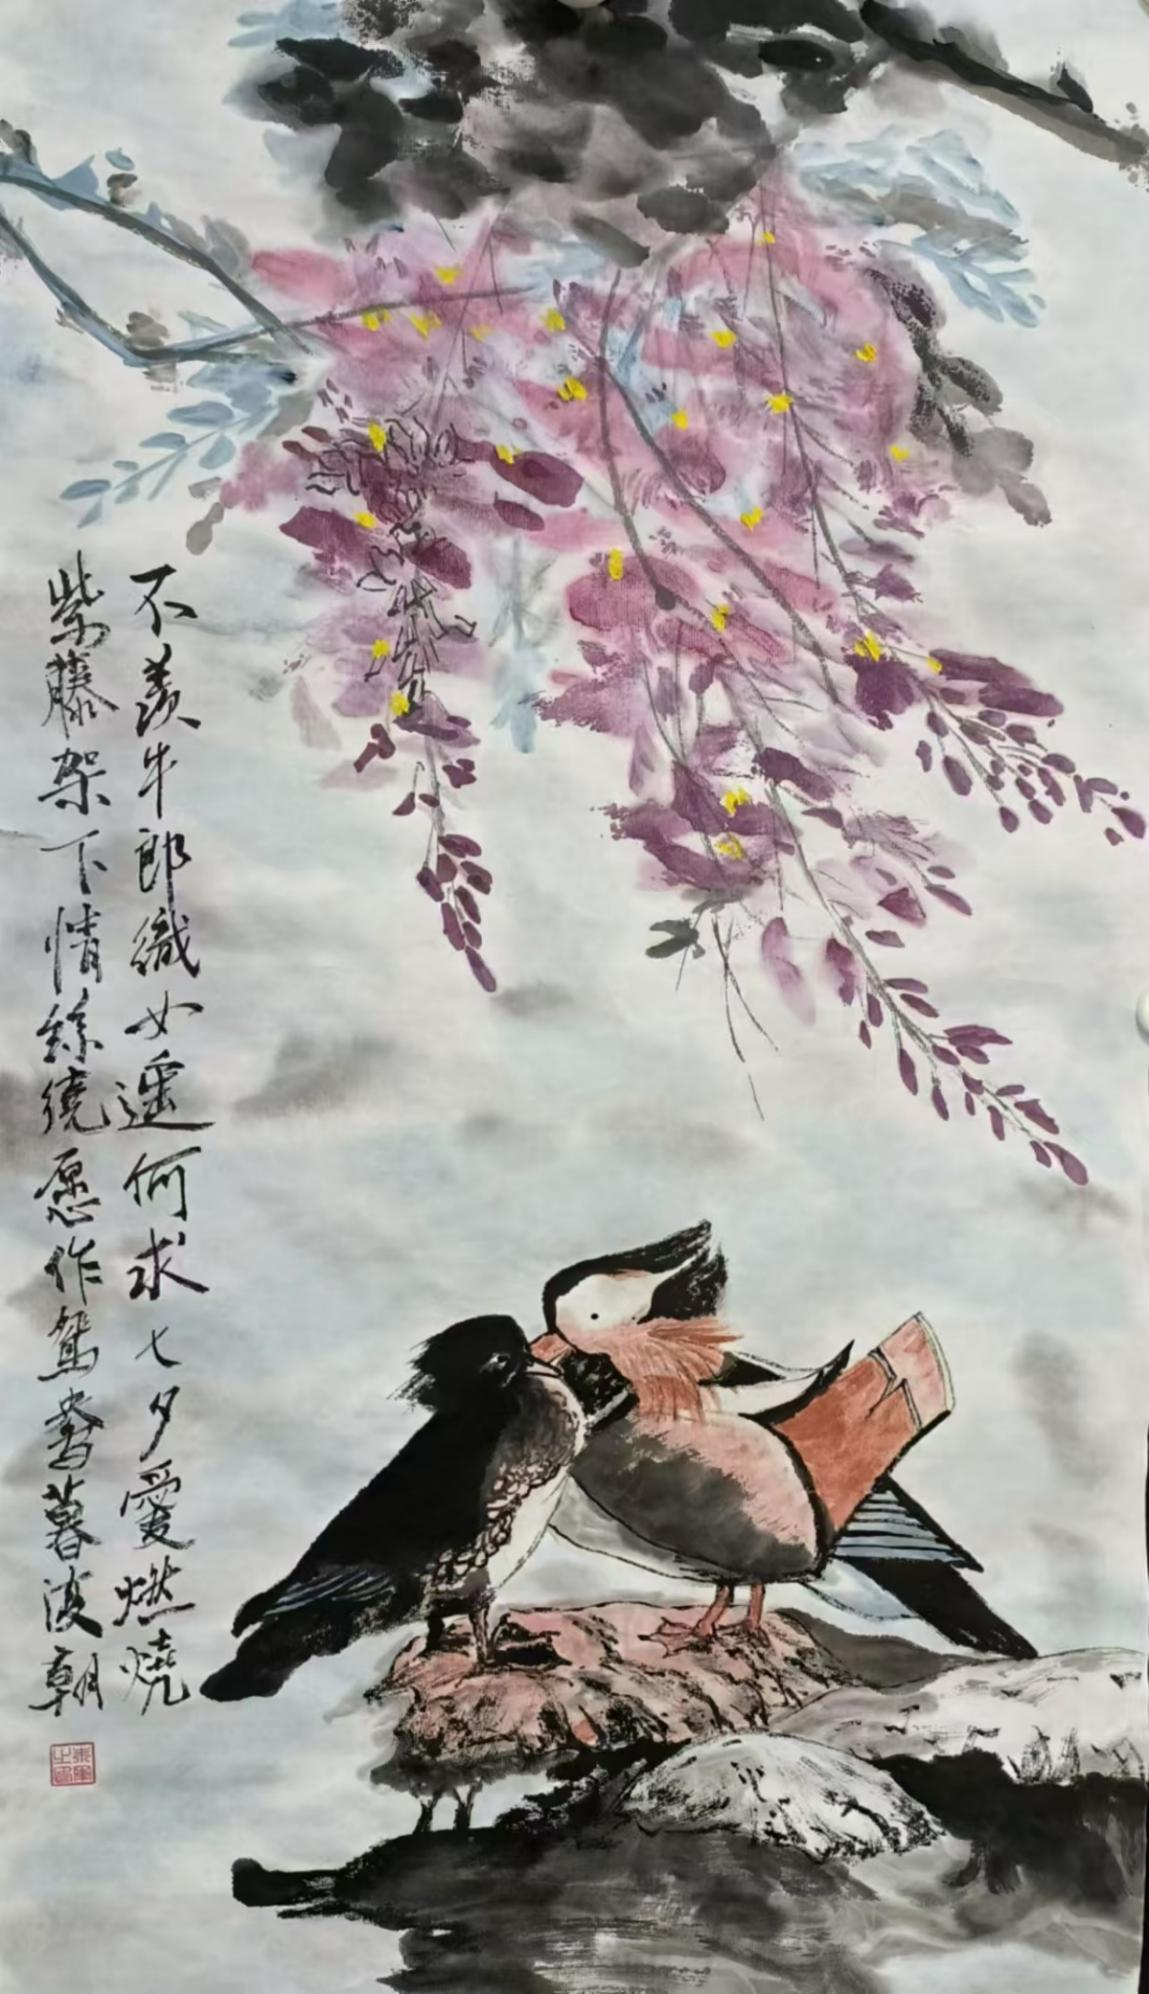 不羡牛郎織女遥何求七夕愛燃燒
紫藤架下情絲繞愿作鴛鴦暮復朝